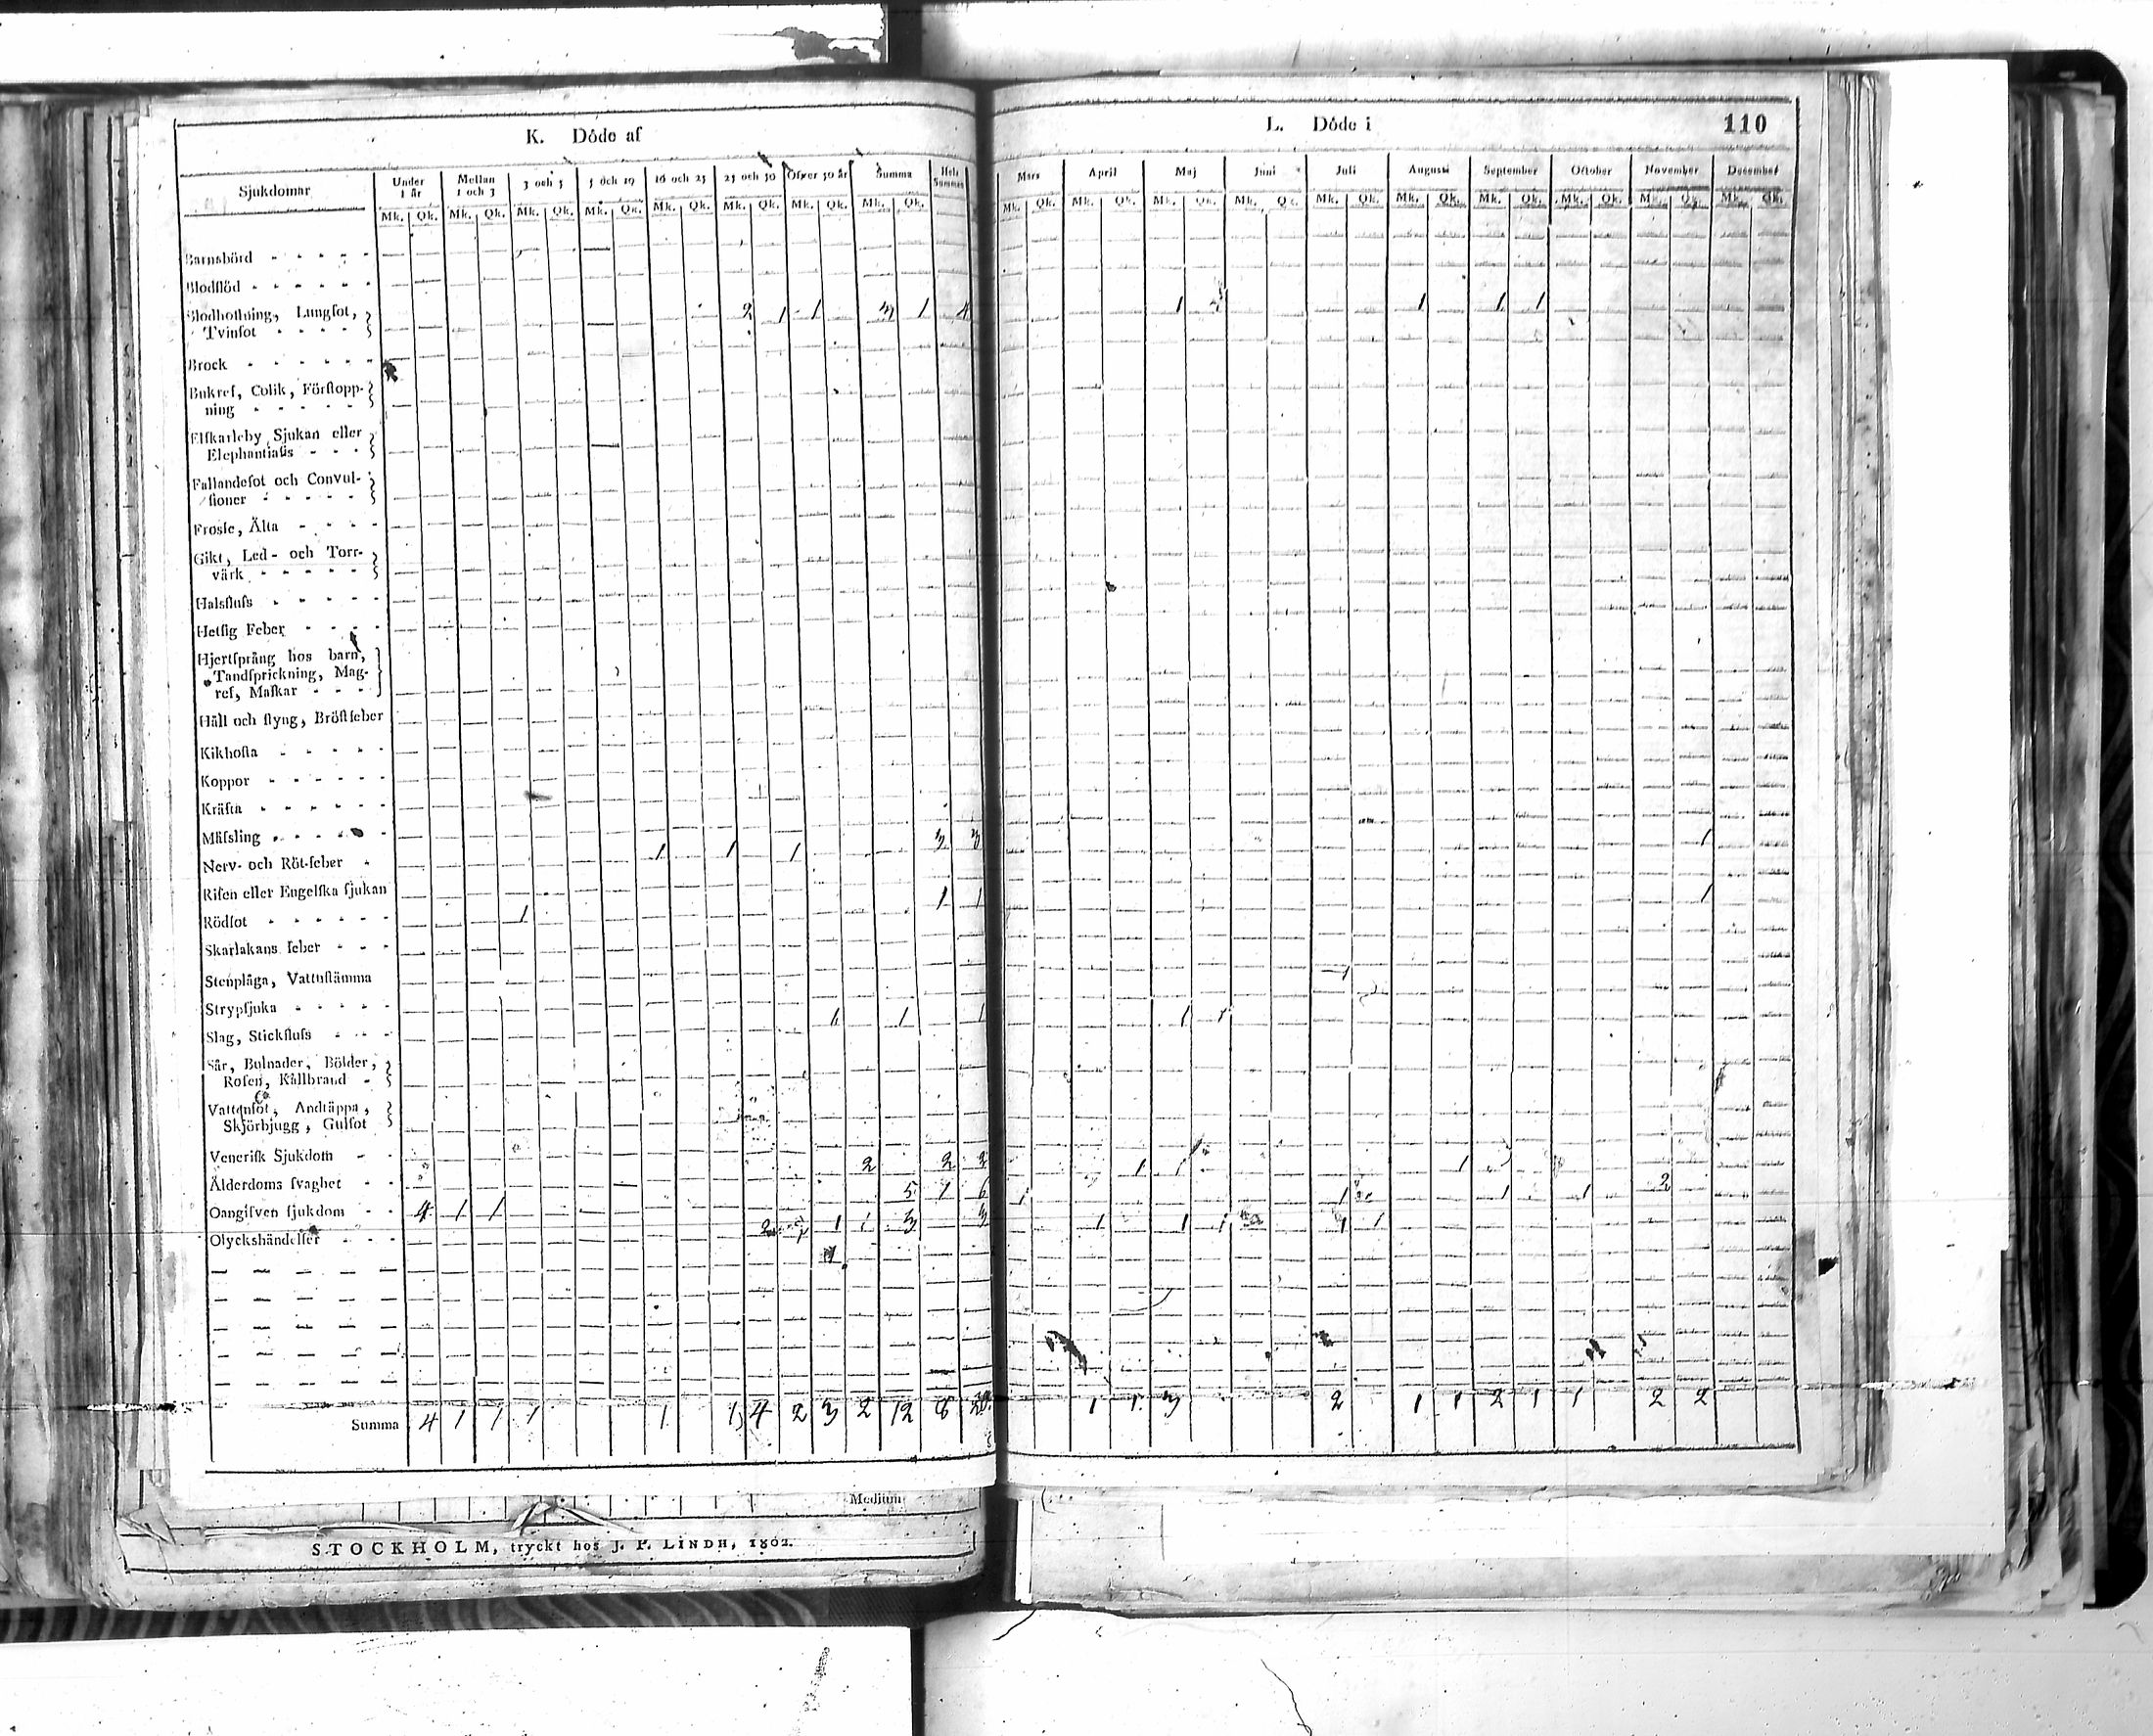 K. Döde af
L. Döde i
110
Sjukdomar Under 1 år Mellan 1 och 3 3 och 5 5 och 10 10 och 25 25 och 50 Öfver 50 år Summa Hela Summan
Mars April Maj Juni Juli Augusti September October November December
Mk. Qk. Mk. Qk. Mk. Qk. Mk. Qk. Mk. Qk. Mk. Qk. Mk. Qk. Mk. Qk.
Mk. Qk. Mk. Qk. Mk. Qk. Mk. Qk. Mk. Qk. Mk. Qk. Mk. Qk. Mk. Qk. Mk. Qk. Mk. Qk.
Barnsbörd
Blodflöd
Blodhoſtning, Lungſot,
Tvinſot 2 1 1 3 1 4 1 1 1 1
Brock
Bukref, Colik, Förſtopp-
ning
Elfkarleby Sjukan eller
Elephantiaſis
Fallandeſot och Convul-
ſioner
Frosſe, Älta
Gikt, Led- och Torr-
värk
Halsfluſs
Hetſig Feber
Hjertſprång hos barn,
Tandſprickning, Mag-
ref, Maſkar
Håll och ſtyng, Bröſtfeber
Kikhoſta
Koppor
Kräfta
Mäſsling
Nerv- och Röt-feber 1 1 1 3 3 1
Riſen eller Engelſka ſjukan
Rödſot 1 1 1 1
Skarlakans feber
Stenplåga, Vattuſtämma
Strypſjuka
Slag, Stickfluſs 1 1 1 1
Sår, Bulnader, Bölder,
Roſen, Kallbrand
Vattenſot, Andtäppa,
Skjörbjugg, Gulſot
Veneriſk Sjukdom
Ålderdoms ſvaghet 2 2 2 1 1 1
Oangifven ſjukdom 4 1 1 5 1 6 1 1 1 2
Olyckshändelſer 2 1 1 3 3 1 1 1 1
Summa 4 1 1 1 1 1 4 2 3 2 12 8 20 1 1 3 2 1 1 2 1 1 2 2
Medium
STOCKHOLM, tryckt hos J. P. LINDH, 1802.